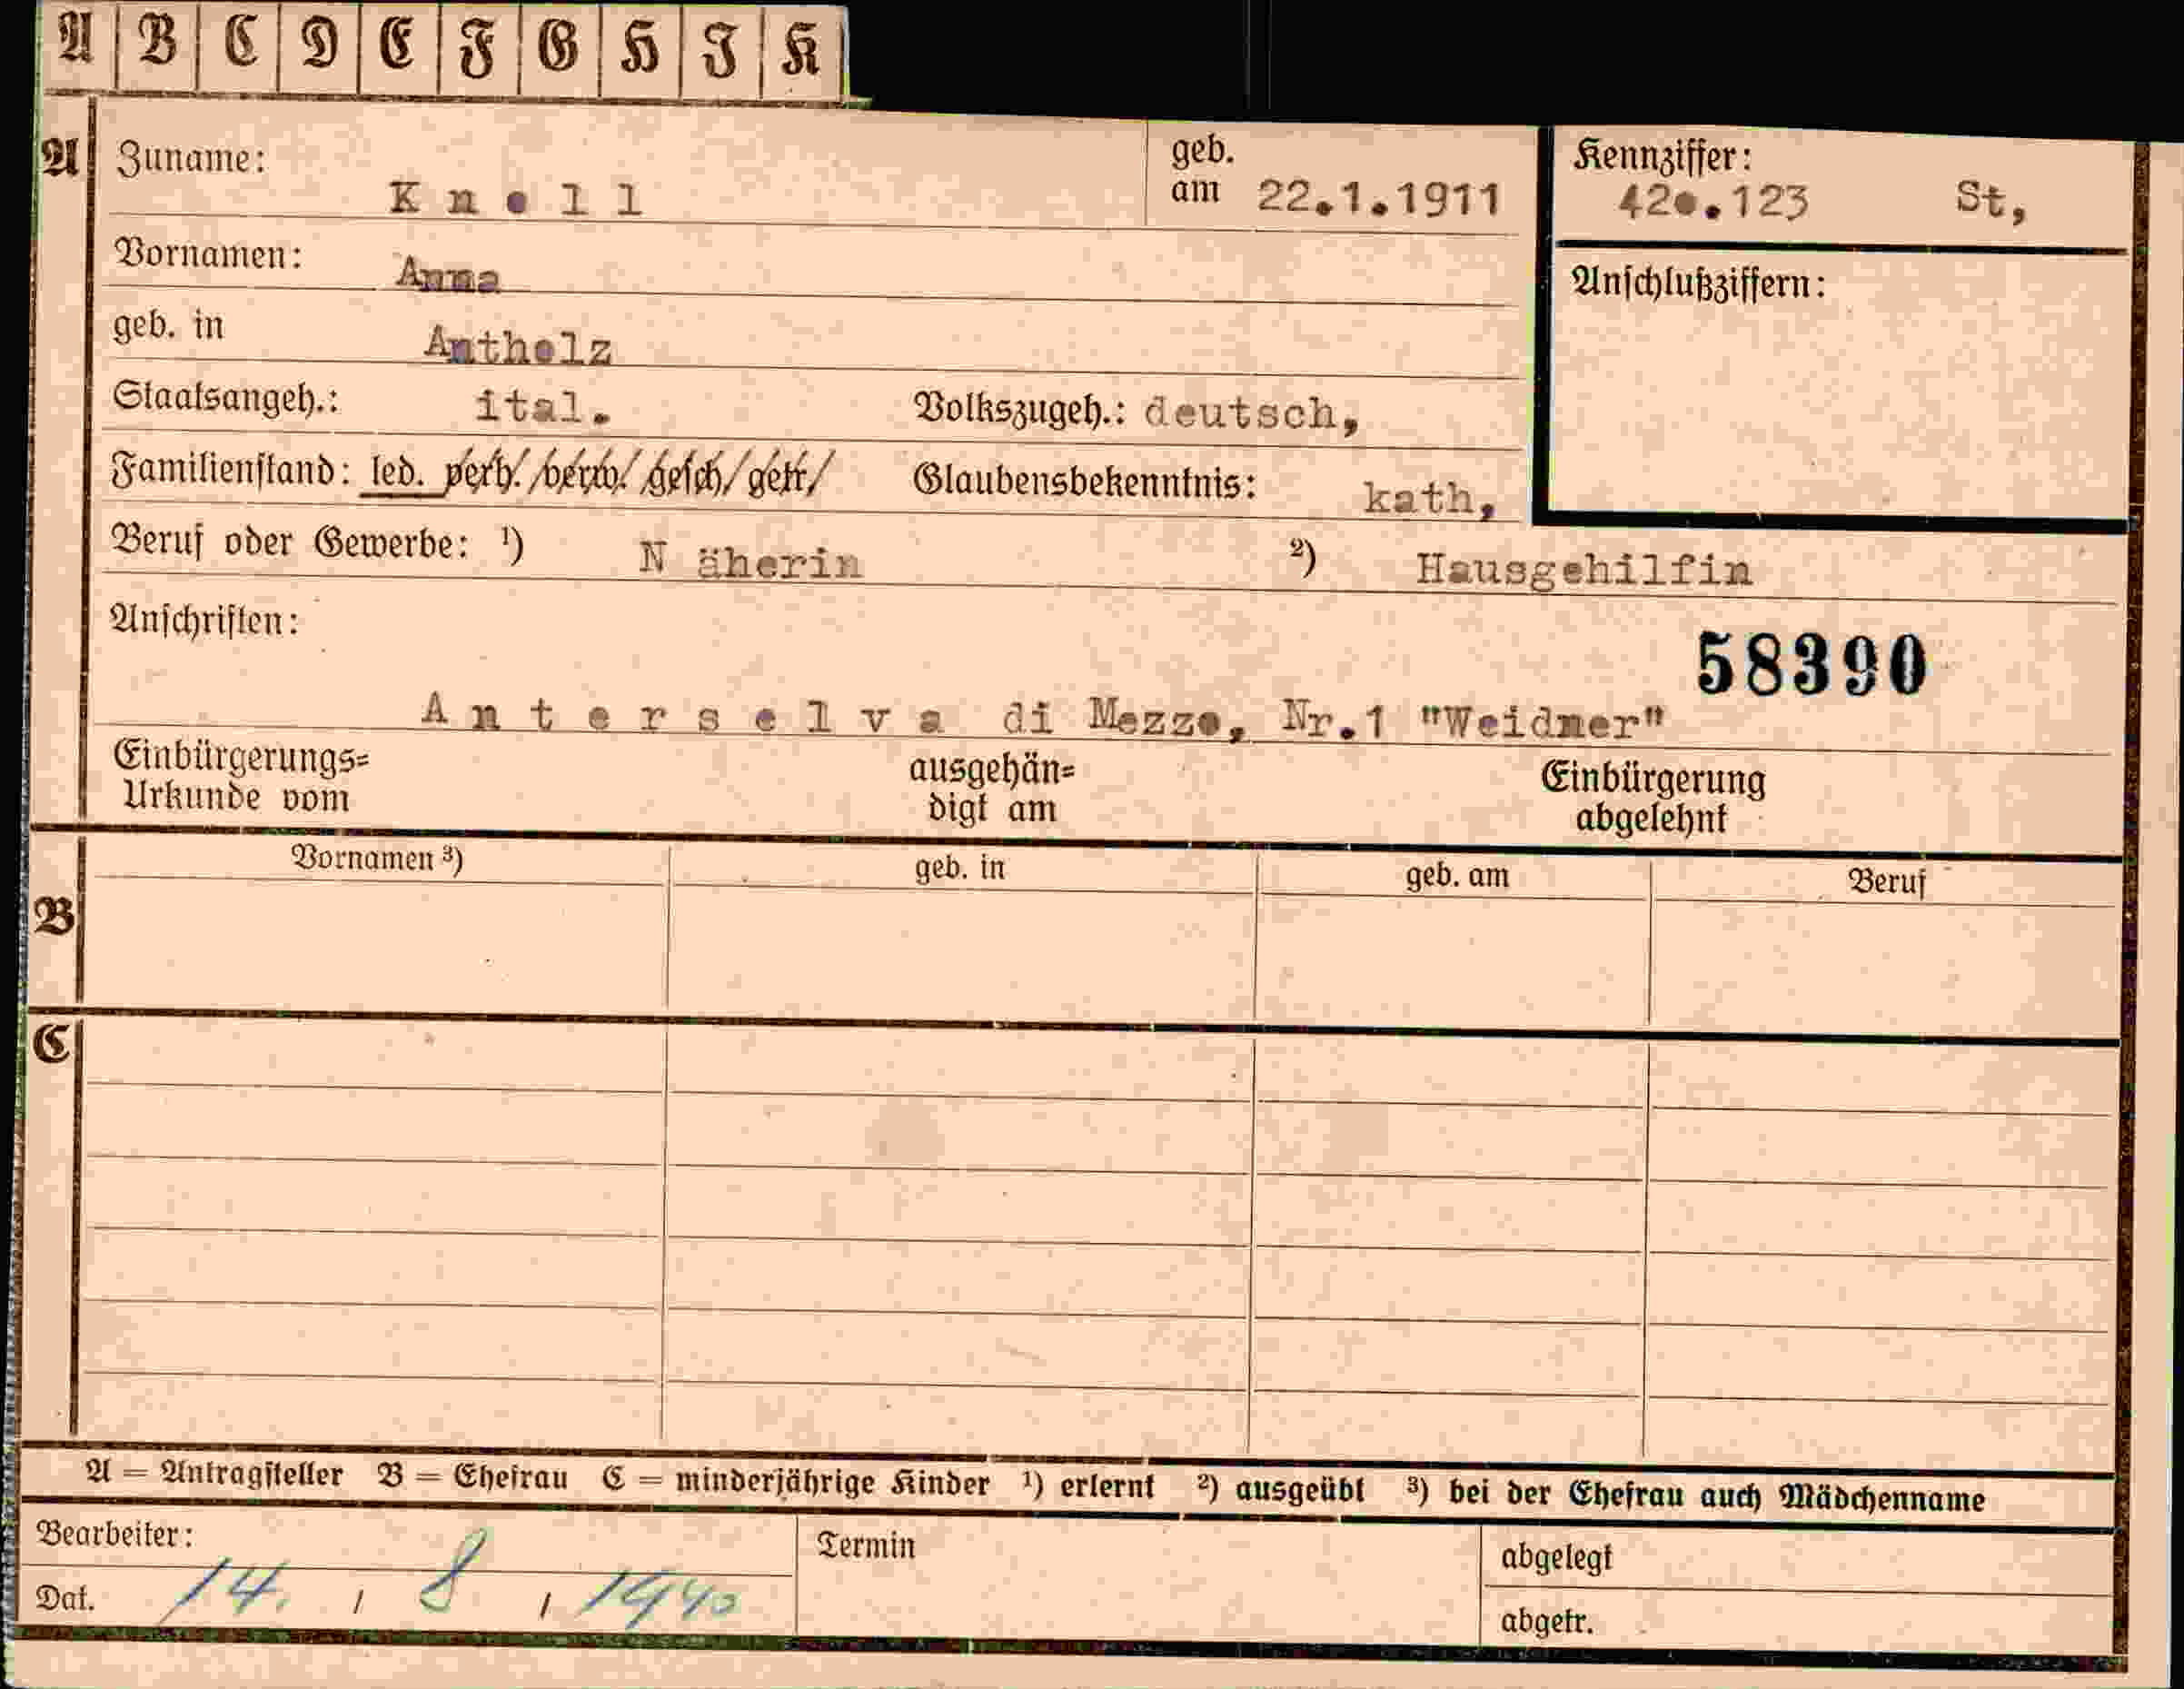 A B C D E F G H I K
A Zuname: geb.
K n o l l am 22.1.1911
Kennziffer:
42o.123 St,
Vornamen: Anna
Anschlußziffern:
geb. in Antholz
Staatsangeh.: ital. Volkszugeh.: deutsch,
Familienstand: led. verh./verw./gesch/getr/ Glaubensbekenntnis: kath,
Beruf oder Gewerbe: ¹) N äherin ²) Hausgehilfin
Anschriften:
58390
A n t e r s e l v a di Mezzo, Nr.1 "Weidner"
Einbürgerungs= ausgehän= Einbürgerung
Urkunde vom digt am abgelehnt
Vornamen ³) geb. in geb. am Beruf
B
C
A = Antragsteller B = Ehefrau C = minderjährige Kinder ¹) erlernt ²) ausgeübt ³) bei der Ehefrau auch Mädchenname
Bearbeiter: Termin abgelegt
Dat. 14. / 8 / 1940 abgetr.